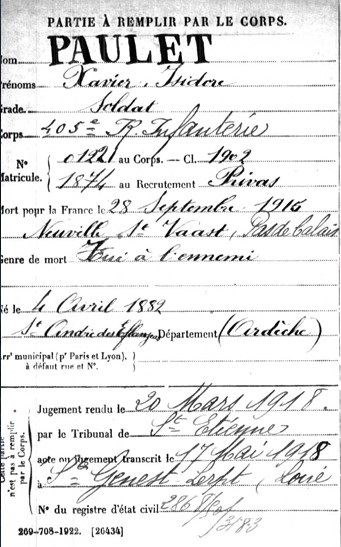 PARTIE À REMPLIR PAR LE CORPS.
Nom PAULET
Prénoms Xavier, Isidore
Grade Soldat
Corps 405e R. Infanterie
N° Matricule. { 0122 au Corps. — Cl. 1902
1874 au Recrutement Privas
Mort pour la France le 28 Septembre 1915
Neuville St Vaast, Pas de Calais
Genre de mort Tué à l'ennemi
Né le 4 Avril 1882
St André des Effangeas Département (Ardèche)
Arrt municipal (pr Paris et Lyon),
à défaut rue et N°.
Cette partie n'est pas à remplir par le Corps.
Jugement rendu le 20 Mars 1918.
par le Tribunal de St Etienne
acte ou jugement transcrit le 17 Mai 1918
à St Genest Lerpt, Loire
N° du registre d'état civil
269-708-1922. [26434]